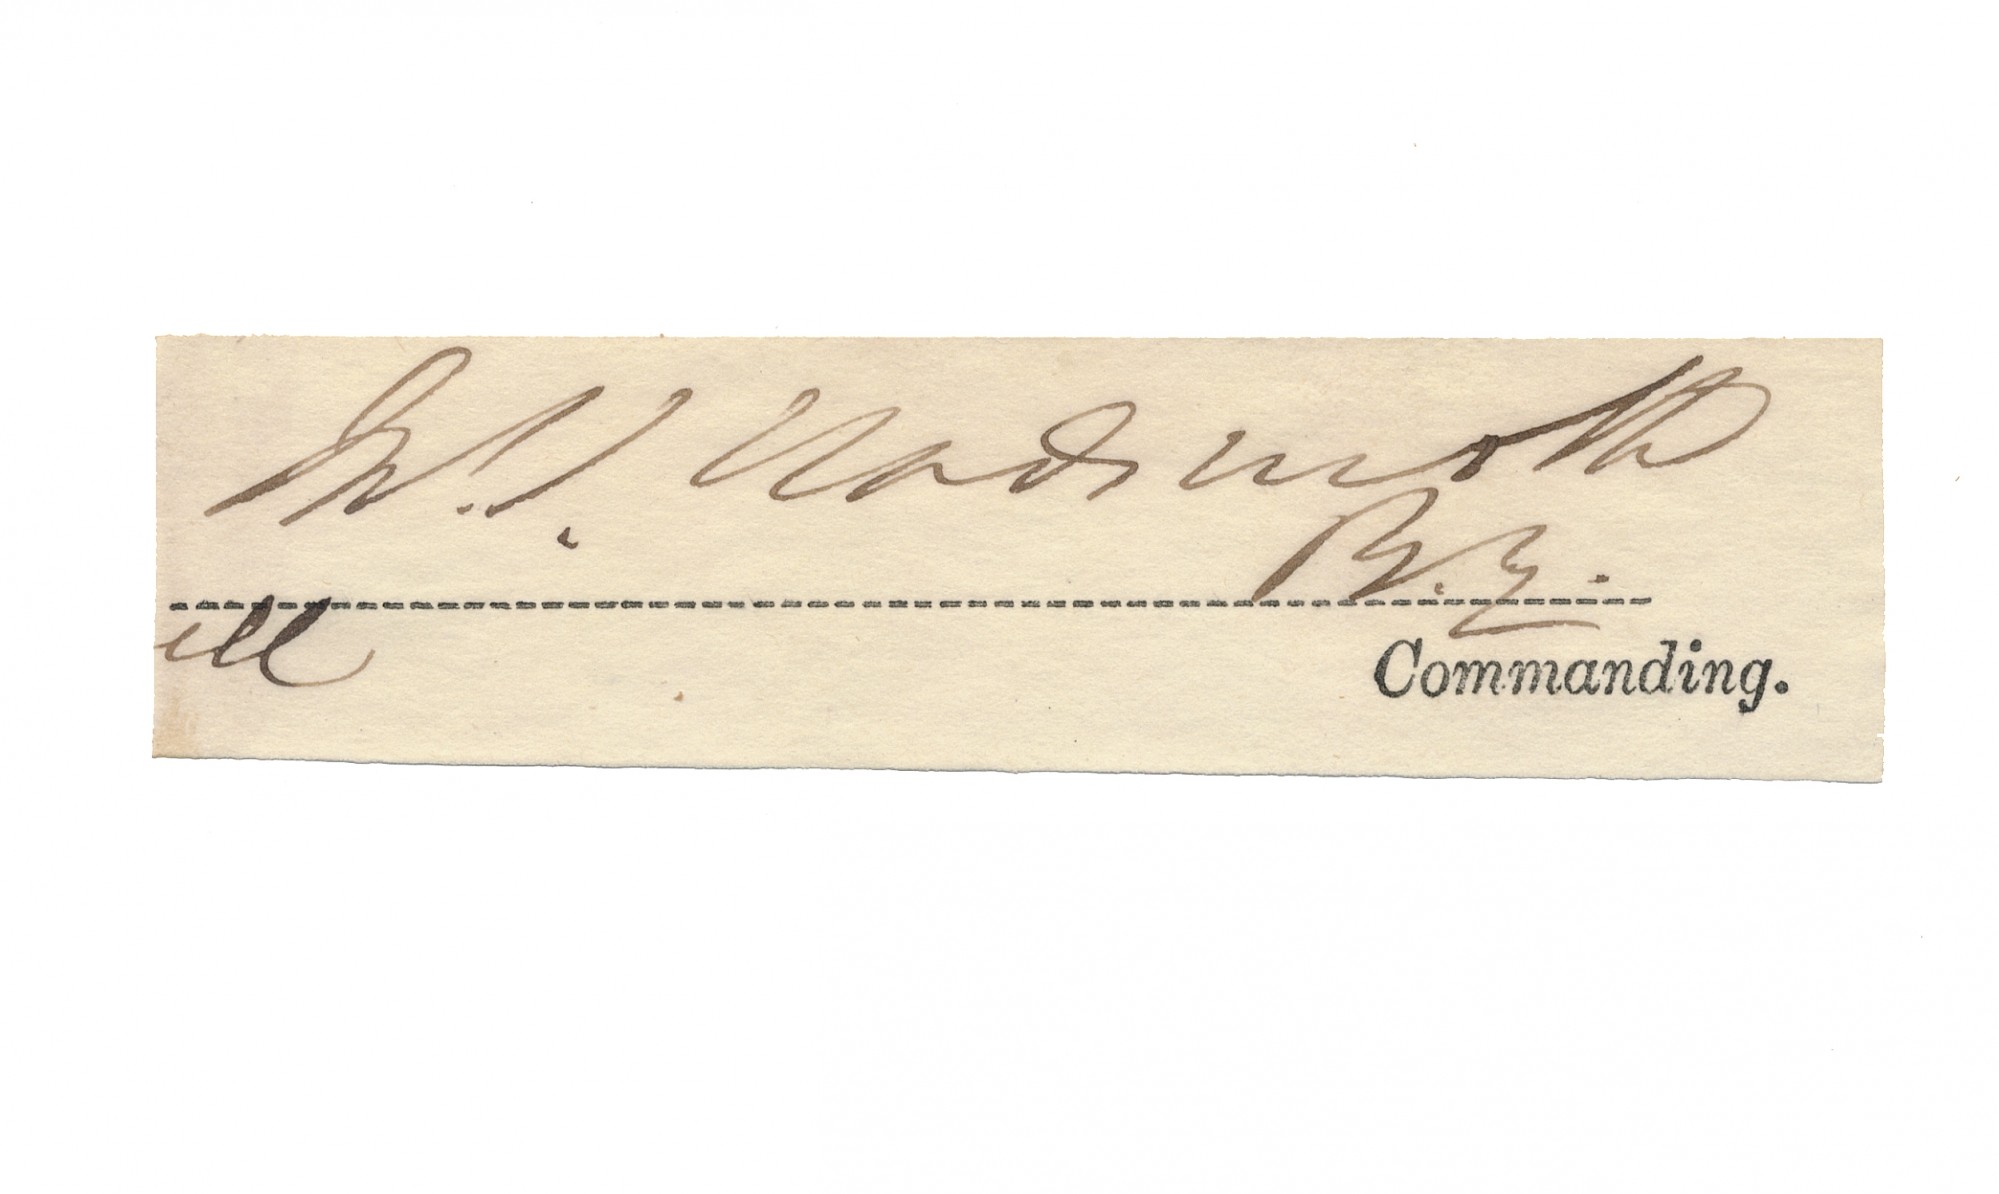 Jas. S. Wadsworth
B. G.
Commanding.